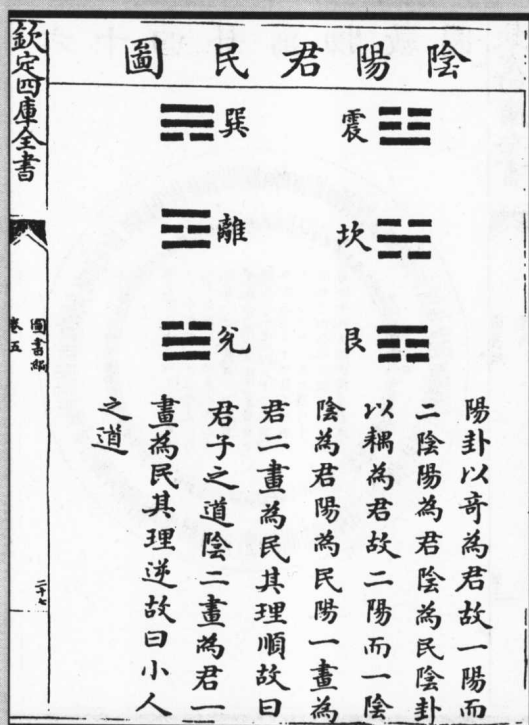 陰陽君民圖
震
坎
艮
巽
離
兊
陽卦以奇為君故一陽而
二陰陽為君陰為民陰卦
以耦為君故二陽而一陰
陰為君陽為民陽一畫為
君二畫為民其理順故曰
君子之道陰二畫為君一
畫為民其理逆故曰小人
之道
欽定四庫全書
圖書編
卷五
二十七